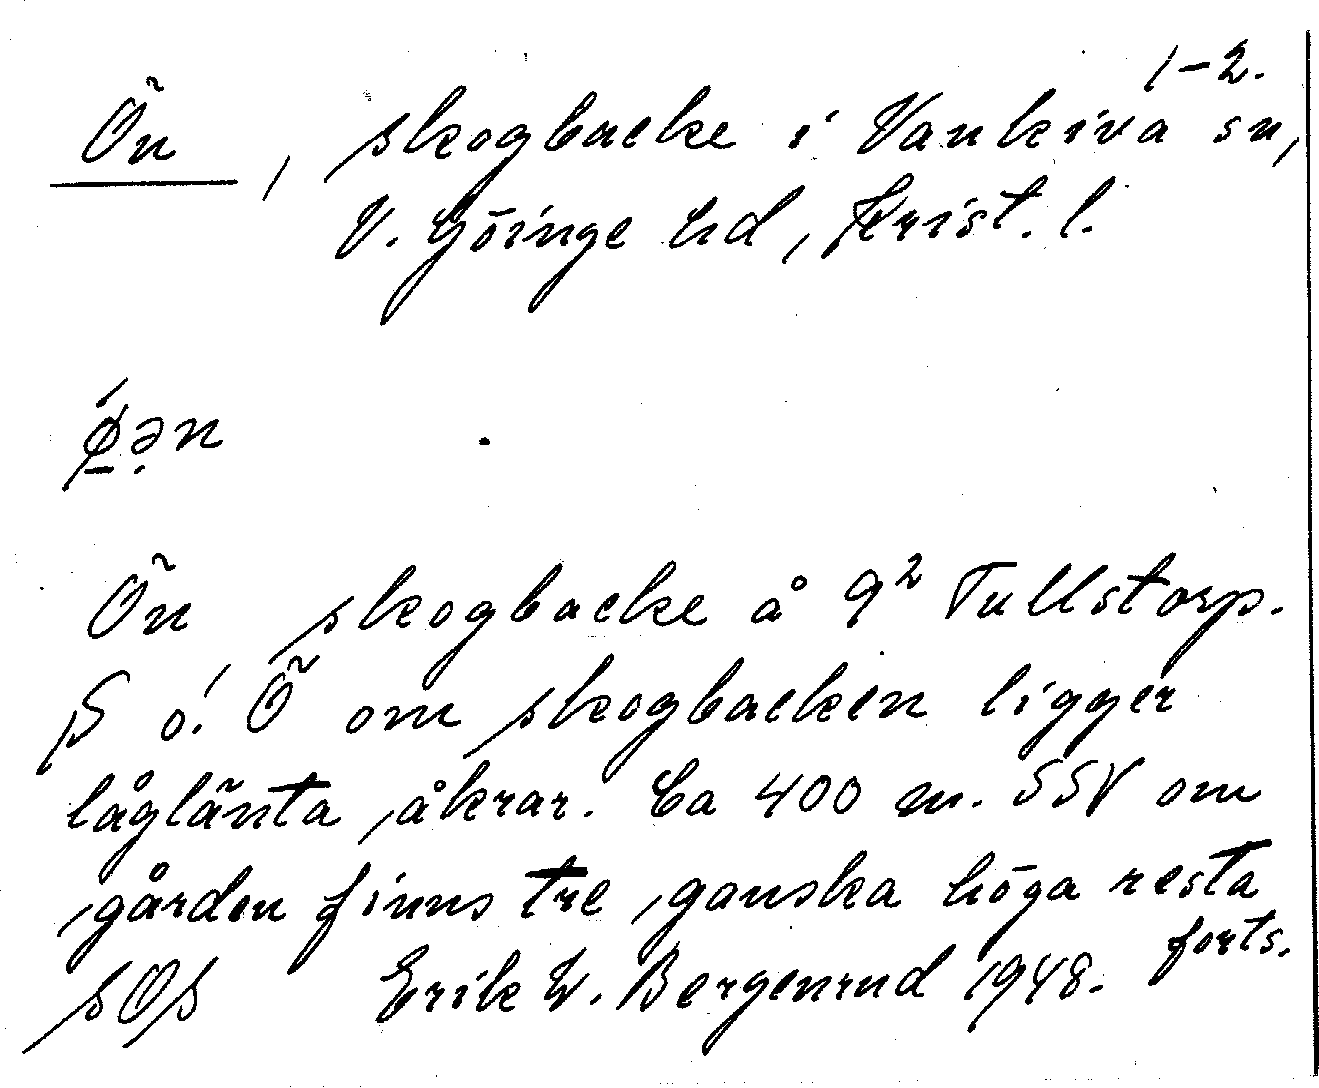 1-2.
Ön, skogbacke i Vankiva sn,
V. Göinge hd, Krist. l.
ǿ̱ə̣n
Ön skogbacke å 9² Tullstorp.
S o. Ö om skogbacken ligger
låglänta åkrar. Ca 400 m. SSV om
gården finns tre ganska höga resta
forts.
SOS Erik W. Bergenrud 1948.